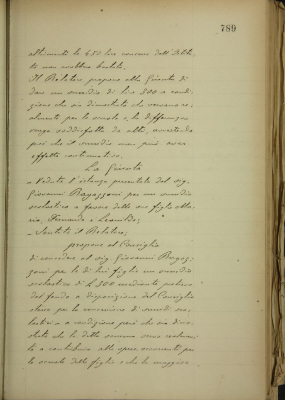 789
altrimenti le 650 lire concesse dall'Istitu
to non sarebbero
Il Relatore propone alla Giunta di
dare un sussidio di lire 300 a condi
zione che sia dimostrato che servano re
almente per le scuole e, la differenza
venga soddisfatta da altri, avvertendo
però che il sussidio non può avere
effetto continuativo.
La Giunta
- Veduta l'istanza presentata dal sig.
Giovanni Bagozzoni per un sussidio
scolastico a favore delle sue figlie Ma
ria, Fernanda e Leonilda;
- Sentito il Relatore;
propone al Consiglio
di concedere al sig Giovanni Bagoz
zoni per le di lui figlie un sussidio
scolastico di L. 300 mediante prelievo
dal fondo a disposizione del Consiglio
stesso per la concessione di sussidi sco
lastici e a condizione però che sia dimo
strato che la detta somma venne realmen
te a contributo alle spese occorrenti per
le scuole delle figlie e che la maggiore